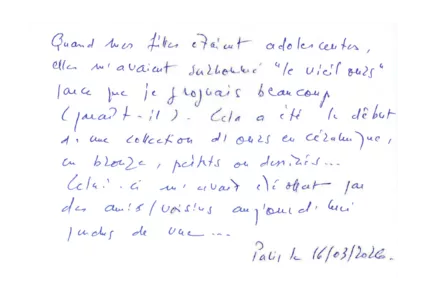 Quand mes filles étaient adolescentes,
elles m'avaient surnommé "le vieil ours"
parce que je grognais beaucoup
(paraît-il). Cela a été le début
d'une collection d'ours en céramique,
en bronze, peints ou dessinés...
Celui-ci m'avait été offert par
des amis/voisins aujourd'hui
perdus de vue...
Paris le 16/03/2026.